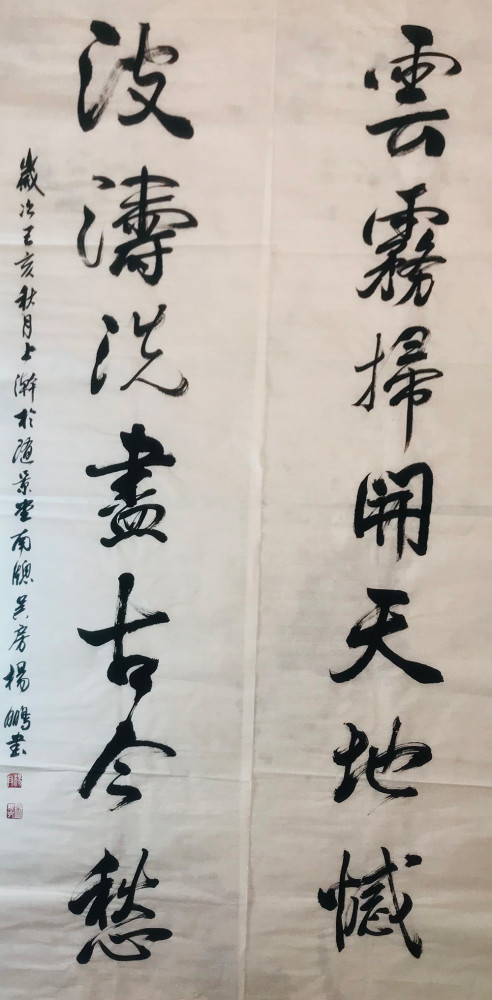 雲霧掃開天地憾
波濤洗盡古今愁
歲次己亥秋月上澣於隨景堂南窗吳房楊鵬書